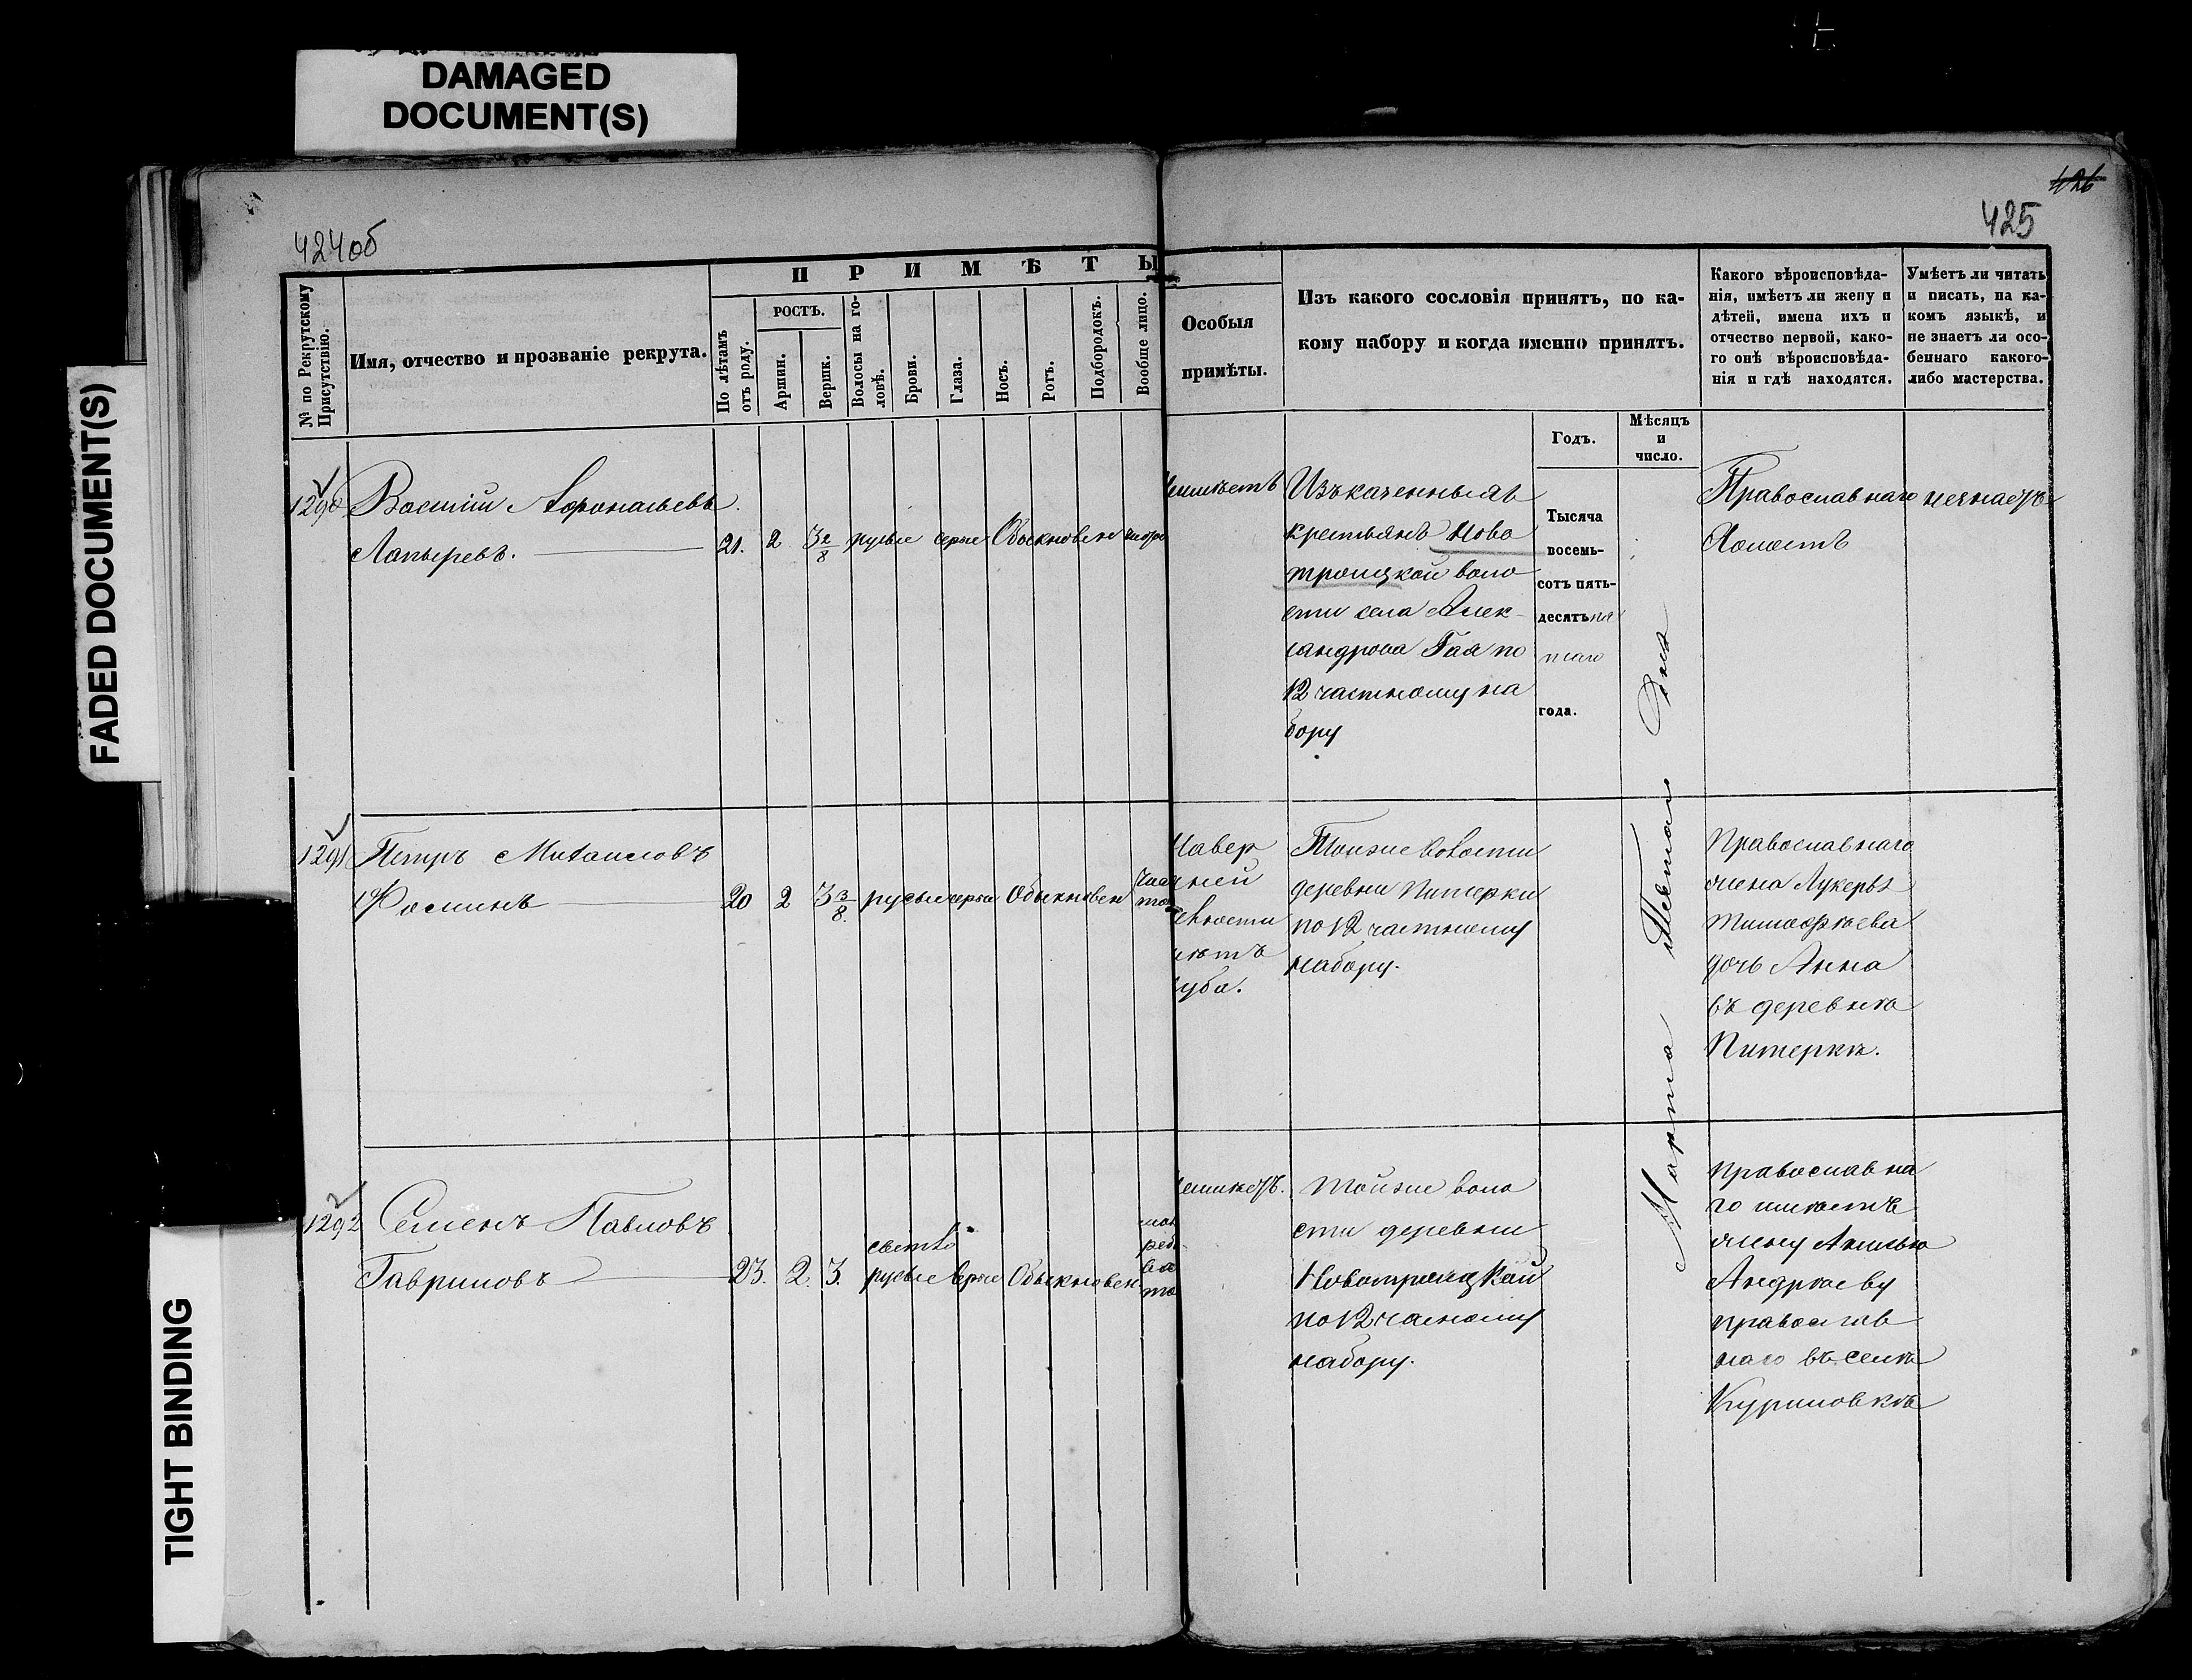 DAMAGED
DOCUMENT(S)
FADED DOCUMENT(S)
TIGHT BINDING
424об
426
425
№ по Рекрутскому Присутствію.
Имя, отчество и прозваніе рекрута.
ПРИМѢТЫ
По лѣтамъ отъ роду.
РОСТЪ.
Аршин.
Вершк.
Волосы на головѣ.
Брови.
Глаза.
Носъ.
Ротъ.
Подбородокъ.
Вообще лицо.
Особыя
примѣты.
Изъ какого сословія принятъ, по ка-
кому набору и когда именно принятъ.
Какого вѣроисповѣда-
нія, имѣетъ ли жену и
дѣтей, имена ихъ и
отчество первой, како-
го онѣ вѣроисповѣда-
нія и гдѣ находятся.
Умѣетъ ли читать
и писать, на ка-
комъ языкѣ, и
не знаетъ ли осо-
беннаго какого-
либо мастерства.
Годъ.
Мѣсяцъ
и
число.
1290
Василій Афонасьевъ
Лапыревъ.
21. 2 3 2/8 русые серые Обыкновен
неимѣетъ
Изъ казенныхъ
крестьянъ Ново
троицкой воло
сти села Алек-
сандрова Гая по
12 частному на
бору
Тысяча
восемь-
сотъ пять-
десятъ пя
таго
года.
Марта Пятаго Дня
Православнаго
Холостъ
1291
Петръ Михаиловъ
Фоминъ
20 2 3 3/8. русые серые Обыкновен
Навер
ней
нѣтъ
зуба.
Тойже волости
деревни Питерки
по 12 частному
набору.
Православнаго
жена Лукерья
Тимофѣева
дочь Анна
въ деревнѣ
Питеркѣ.
1292
Семенъ Павловъ
Гавриловъ
23. 2. 3. светло
русые серые Обыкновен
Тойже воло
сти деревни
Новотроицкой
по 12 часному
набору.
православна
го имѣетъ
жену
Андрѣеву
православ
наго въ селѣ
Куриловкѣ